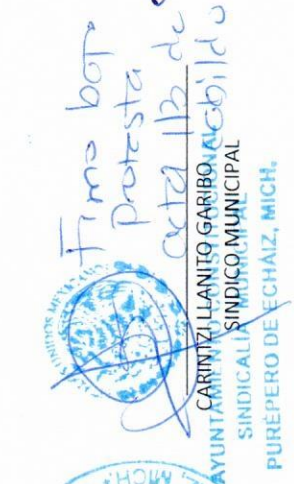 Firmo bajo
protesta
acta 113 de
cabildo
ESTADOS UNIDOS MEXICANOS
CARINTZI LLANITO GARIBO
SINDICO MUNICIPAL
AYUNTAMIENTO CONSTITUCIONAL
SINDICALIA MUNICIPAL
PURÉPERO DE ECHÁIZ, MICH.
MICH.